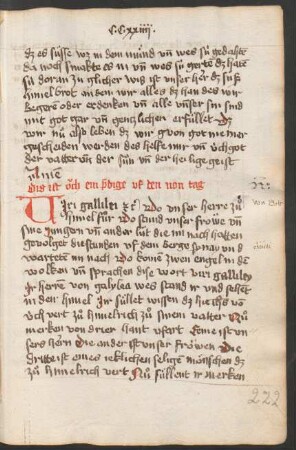 CCxxiiij
dz es süsse wz in dem mund vn̄ wes sú gedahte
da noch smakte es in vn̄ wes sú gerte dz hate
sú doran zu glicher wis ist vnser h̄er dz süß
himelbrot an dem wir alles dz han des wir
begere oder erdenken vn̄ alle vnser sin sind
mit got gar vn̄ gentzlichen erfüllet Dz
wir nu also leben dz wir von got niemer
gescheiden werden des helf mir vn̄ úch got
der vatter vn̄ der sun vn̄ der heilige geist
Amen
Dis ist och ein bdige vf den non tag
Viri gallilei Do vnser herre zu
himel für Do stund vnser frowe vn̄
sine jungern vn̄ andar lút die im nach hatten
geuolget die stunden vf dem berge vn̄
warteten im nach Do komen zwen engel in de
wolken vn̄ sprachen dise wort viri galliley
Ir herren von galylea wes stand ir vnd sehent
in den himel Ir súllet wissen dz hie ihs vo
úch vert zu himelrich zu sinem vatter Nu
merken von drier hant vfert Eine ist vn
sers h̄ern Die ander ist vnser frowen Die
dritte ist eines ieklichen selige mönschen dz
zu himelrich vert Nu súllent ir merken
222